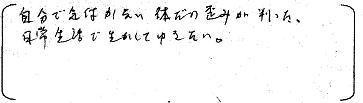 自分で気付かない体だの歪みが判った、
日常生活で生かしてゆきたい。